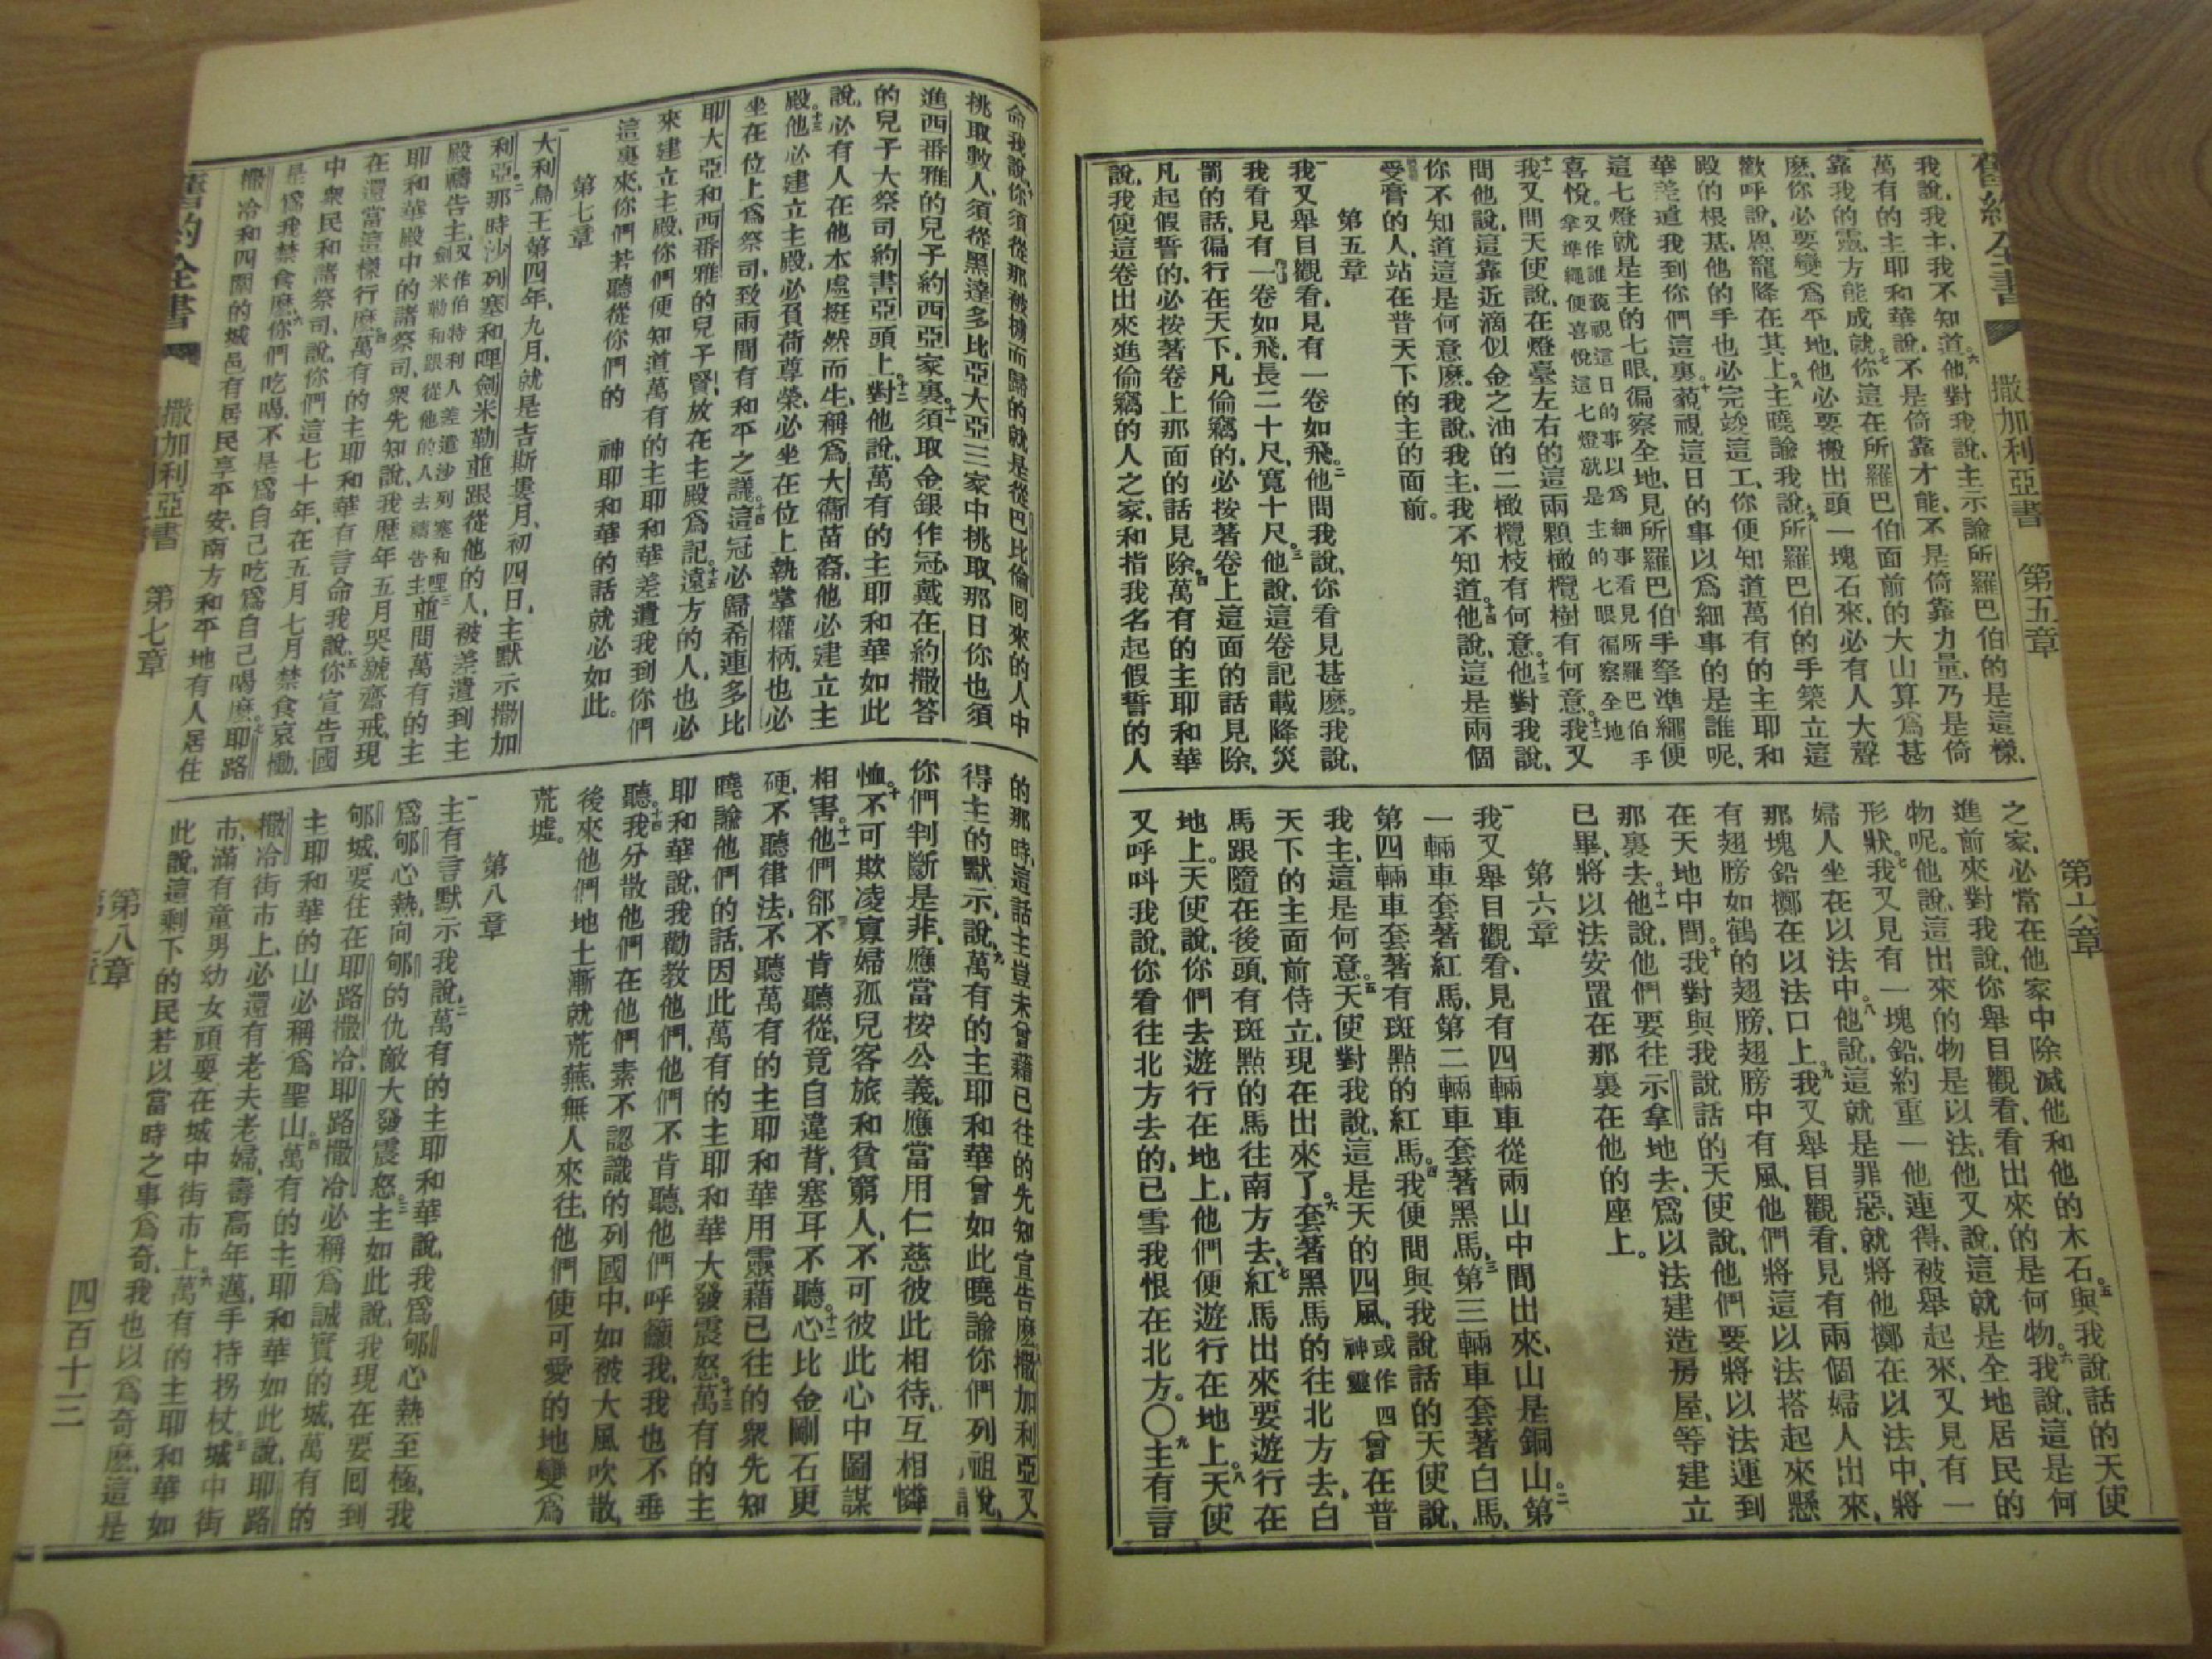 舊約全書 撒加利亞書 第五章 第六章
我說、我主、我不知道。六他對我說、主示諭所羅巴伯的是這樣、
萬有的主耶和華說、不是倚靠才能、不是倚靠力量、乃是倚
靠我的靈、方能成就。七你這在所羅巴伯面前的大山算爲甚
麽、你必要變爲平地、他必要搬出頭一塊石來、必有人大聲
歡呼說、恩寵降在其上。八主曉諭我說、九所羅巴伯的手築立這
殿的根基、他的手也必完竣這工、你便知道萬有的主耶和
華差遣我到你們這裏。十藐視這日的事以爲細事的是誰呢、
這七燈就是主的七眼、徧察全地、見所羅巴伯手拏準繩便
喜悅。又作誰藐視這日的事以爲細事看見所羅巴伯手拿準繩便喜悅這七燈就是主的七眼徧察全地
十一我又問天使說、在燈臺左右的這兩顆橄欖樹有何意。十二我又
問他說、這靠近滴似金之油的二橄欖枝有何意。十三他對我說、
你不知道這是何意麽。我說、我主、我不知道。十四他說、這是兩個
受膏的人、站在普天下的主的面前。
第五章
一我又舉目觀看、見有一卷如飛。二他問我說、你看見甚麽。我說、
我看見有一卷如飛、長二十尺、寬十尺。三他說、這卷記載降災
罰的話、徧行在天下、凡偷竊的、必按著卷上這面的話見除、
凡起假誓的、必按著卷上那面的話見除。四萬有的主耶和華
說、我使這卷出來、進偷竊的人之家、和指我名起假誓的人
之家、必當在他家中除滅他和他的木石。五與我說話的天使
進前來對我說、你舉目觀看、看出來的是何物。六我說、這是何
物呢。他說、這出來的物是以法、他又說、這就是全地居民的
形狀。七我又見有一塊鉛、約重一他連得、被舉起來、又見有一
婦人坐在以法中。八他說、這就是罪惡、就將他擲在以法中、將
那塊鉛擲在以法口上。九我又舉目觀看、見有兩個婦人出來、
有翅膀如鶴的翅膀、翅膀中有風、他們將這以法搭起來懸
在天地中間。十我對與我說話的天使說、他們要將以法運到
那裏去。十一他說、他們要往示拿地去、爲以法建造房屋、等建立
已畢、將以法安置在那裏在他的座上。
第六章
一我又舉目觀看、見有四輛車從兩山中間出來、山是銅山。二第
一輛車套著紅馬、第二輛車套著黑馬、三第三輛車套著白馬、
第四輛車套著有斑點的紅馬。四我便問與我說話的天使說、
我主、這是何意。五天使對我說、這是天的四風、或作四神靈曾在普
天下的主面前侍立、現在出來了。六套著黑馬的往北方去、白
馬跟隨在後頭、有斑點的馬往南方去、七紅馬出來要遊行在
地上。天使說、你們去遊行在地上、他們便遊行在地上。八天使
又呼叫我說、你看往北方去的、已雪我恨在北方。〇九主有言
命我說、你須從那被擄而歸的、就是從巴比倫回來的人中
挑取數人、須從黑達多比亞大亞三家中挑取、那日你也須
進西番雅的兒子約西亞家裏、十一須取金銀作冠、戴在約撒答
的兒子大祭司約書亞頭上、十二對他說、萬有的主耶和華如此
說、必有人在他本處挺然而生、稱爲大衞苗裔、他必建立主
殿。十三他必建立主殿、必負荷尊榮、必坐在位上執掌權柄、也必
坐在位上爲祭司、致兩間有和平之議。十四這冠必歸希連多比
耶大亞和西番雅的兒子賢、放在主殿爲記。十五遠方的人、也必
來建立主殿、你們便知道萬有的主耶和華差遣我到你們
這裏來、你們若聽從你們的 神耶和華的話就必如此。
第七章
一大利烏王第四年、九月、就是吉斯婁月、初四日、主默示撒加
利亞。二那時沙列塞和哩劍米勒並跟從他的人、被差遣到主
殿禱告主、又作伯特利人差遣沙列塞和哩劍米勒和跟從他的人去禱告主三並問萬有的主
耶和華殿中的諸祭司、衆先知說、我歷年五月哭號齋戒、現
在還當這樣行麽。四萬有的主耶和華有言命我說、五你宣告國
中衆民和諸祭司、說、你們這七十年、在五月七月禁食哀慟、
是爲我禁食麽。六你們吃喝、不是爲自己吃爲自己喝麽。七耶路
撒冷和四圍的城邑有居民享平安、南方和平地有人居住
的那時、這話主豈未曾藉已往的先知宣告麽。八撒加利亞又
得主的默示說、九萬有的主耶和華曾如此曉諭你們列祖說、
你們判斷是非、應當按公義、應當用仁慈彼此相待、互相憐
恤。十不可欺凌寡婦孤兒客旅和貧窮人、不可彼此心中圖謀
相害。十一他們卻不肯聽從、竟自違背、塞耳不聽。十二心比金剛石更
硬、不聽律法、不聽萬有的主耶和華用靈藉已往的衆先知
曉諭他們的話、因此萬有的主耶和華大發震怒。十三萬有的主
耶和華說、我勸敎他們、他們不肯聽、他們呼籲我、我也不垂
聽。十四我分散他們在他們素不認識的列國中、如被大風吹散、
後來他們地土漸就荒蕪、無人來往、他們使可愛的地變爲
荒墟。
第八章
一主有言默示我說、二萬有的主耶和華說、我爲郇心熱至極、我
爲郇心熱、向郇的仇敵大發震怒。三主如此說、我現在要回到
郇城、要住在耶路撒冷、耶路撒冷必稱爲誠實的城、萬有的
主耶和華的山必稱爲聖山。四萬有的主耶和華如此說、耶路
撒冷街市上、必還有老夫老婦、壽高年邁、手持拐杖。五城中街
市、滿有童男幼女頑耍在城中街市上。六萬有的主耶和華如
此說、這剩下的民若以當時之事爲奇、我也以爲奇麽、這是
舊約全書 撒加利亞書 第七章 第八章 四百十三